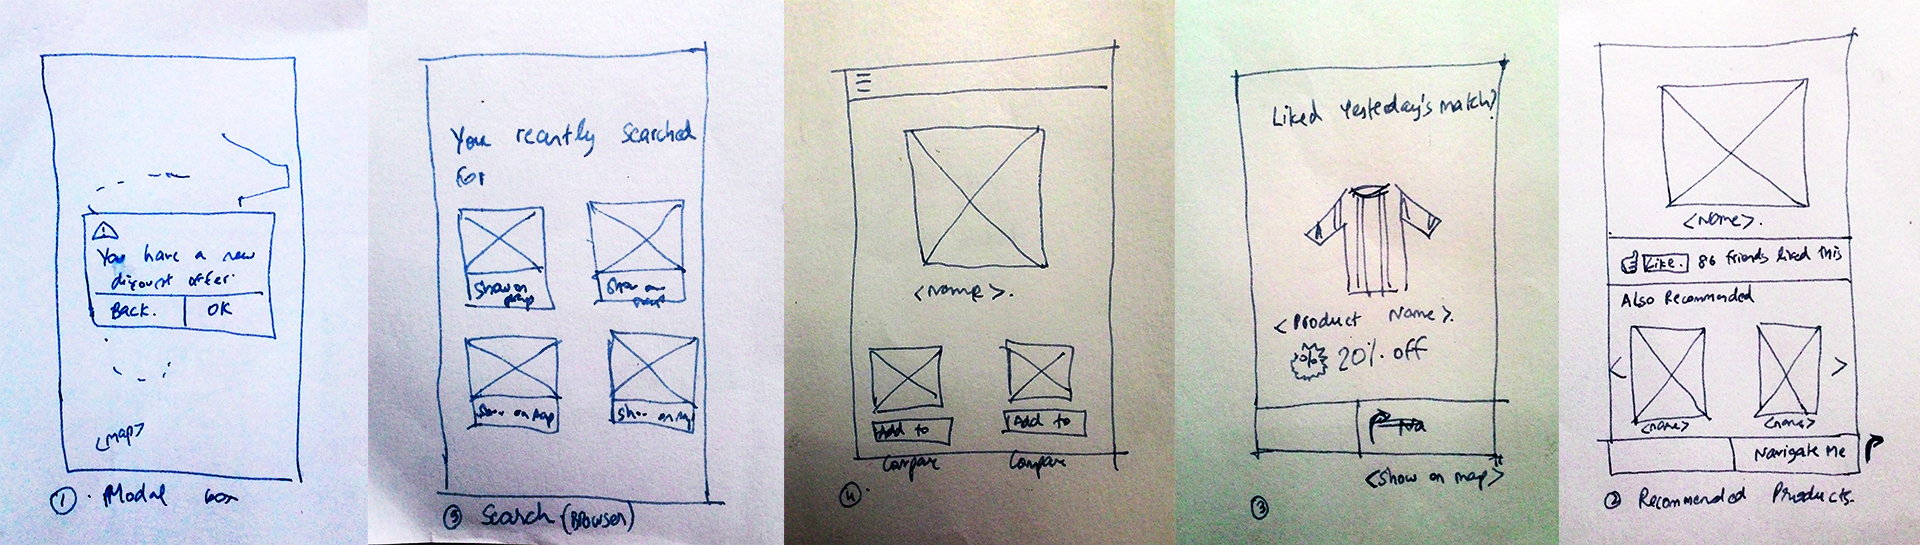 You have a new
discount offer.
Back.
OK
<map>
1. Modal box
You recently searched
for
Show on
map
Show on
map
Show on Map
Show on Map
5 Search (Browser)
<name>.
Add to
Compare
Add to
Compare
4.
Liked Yesterday's match?
<Product Name>.
% 20% off
Na
<show on map>
3
<name>.
Like. 86 friends liked this
Also Recommended
< >
<name>
<name>
Navigate Me
2 Recommended Products.